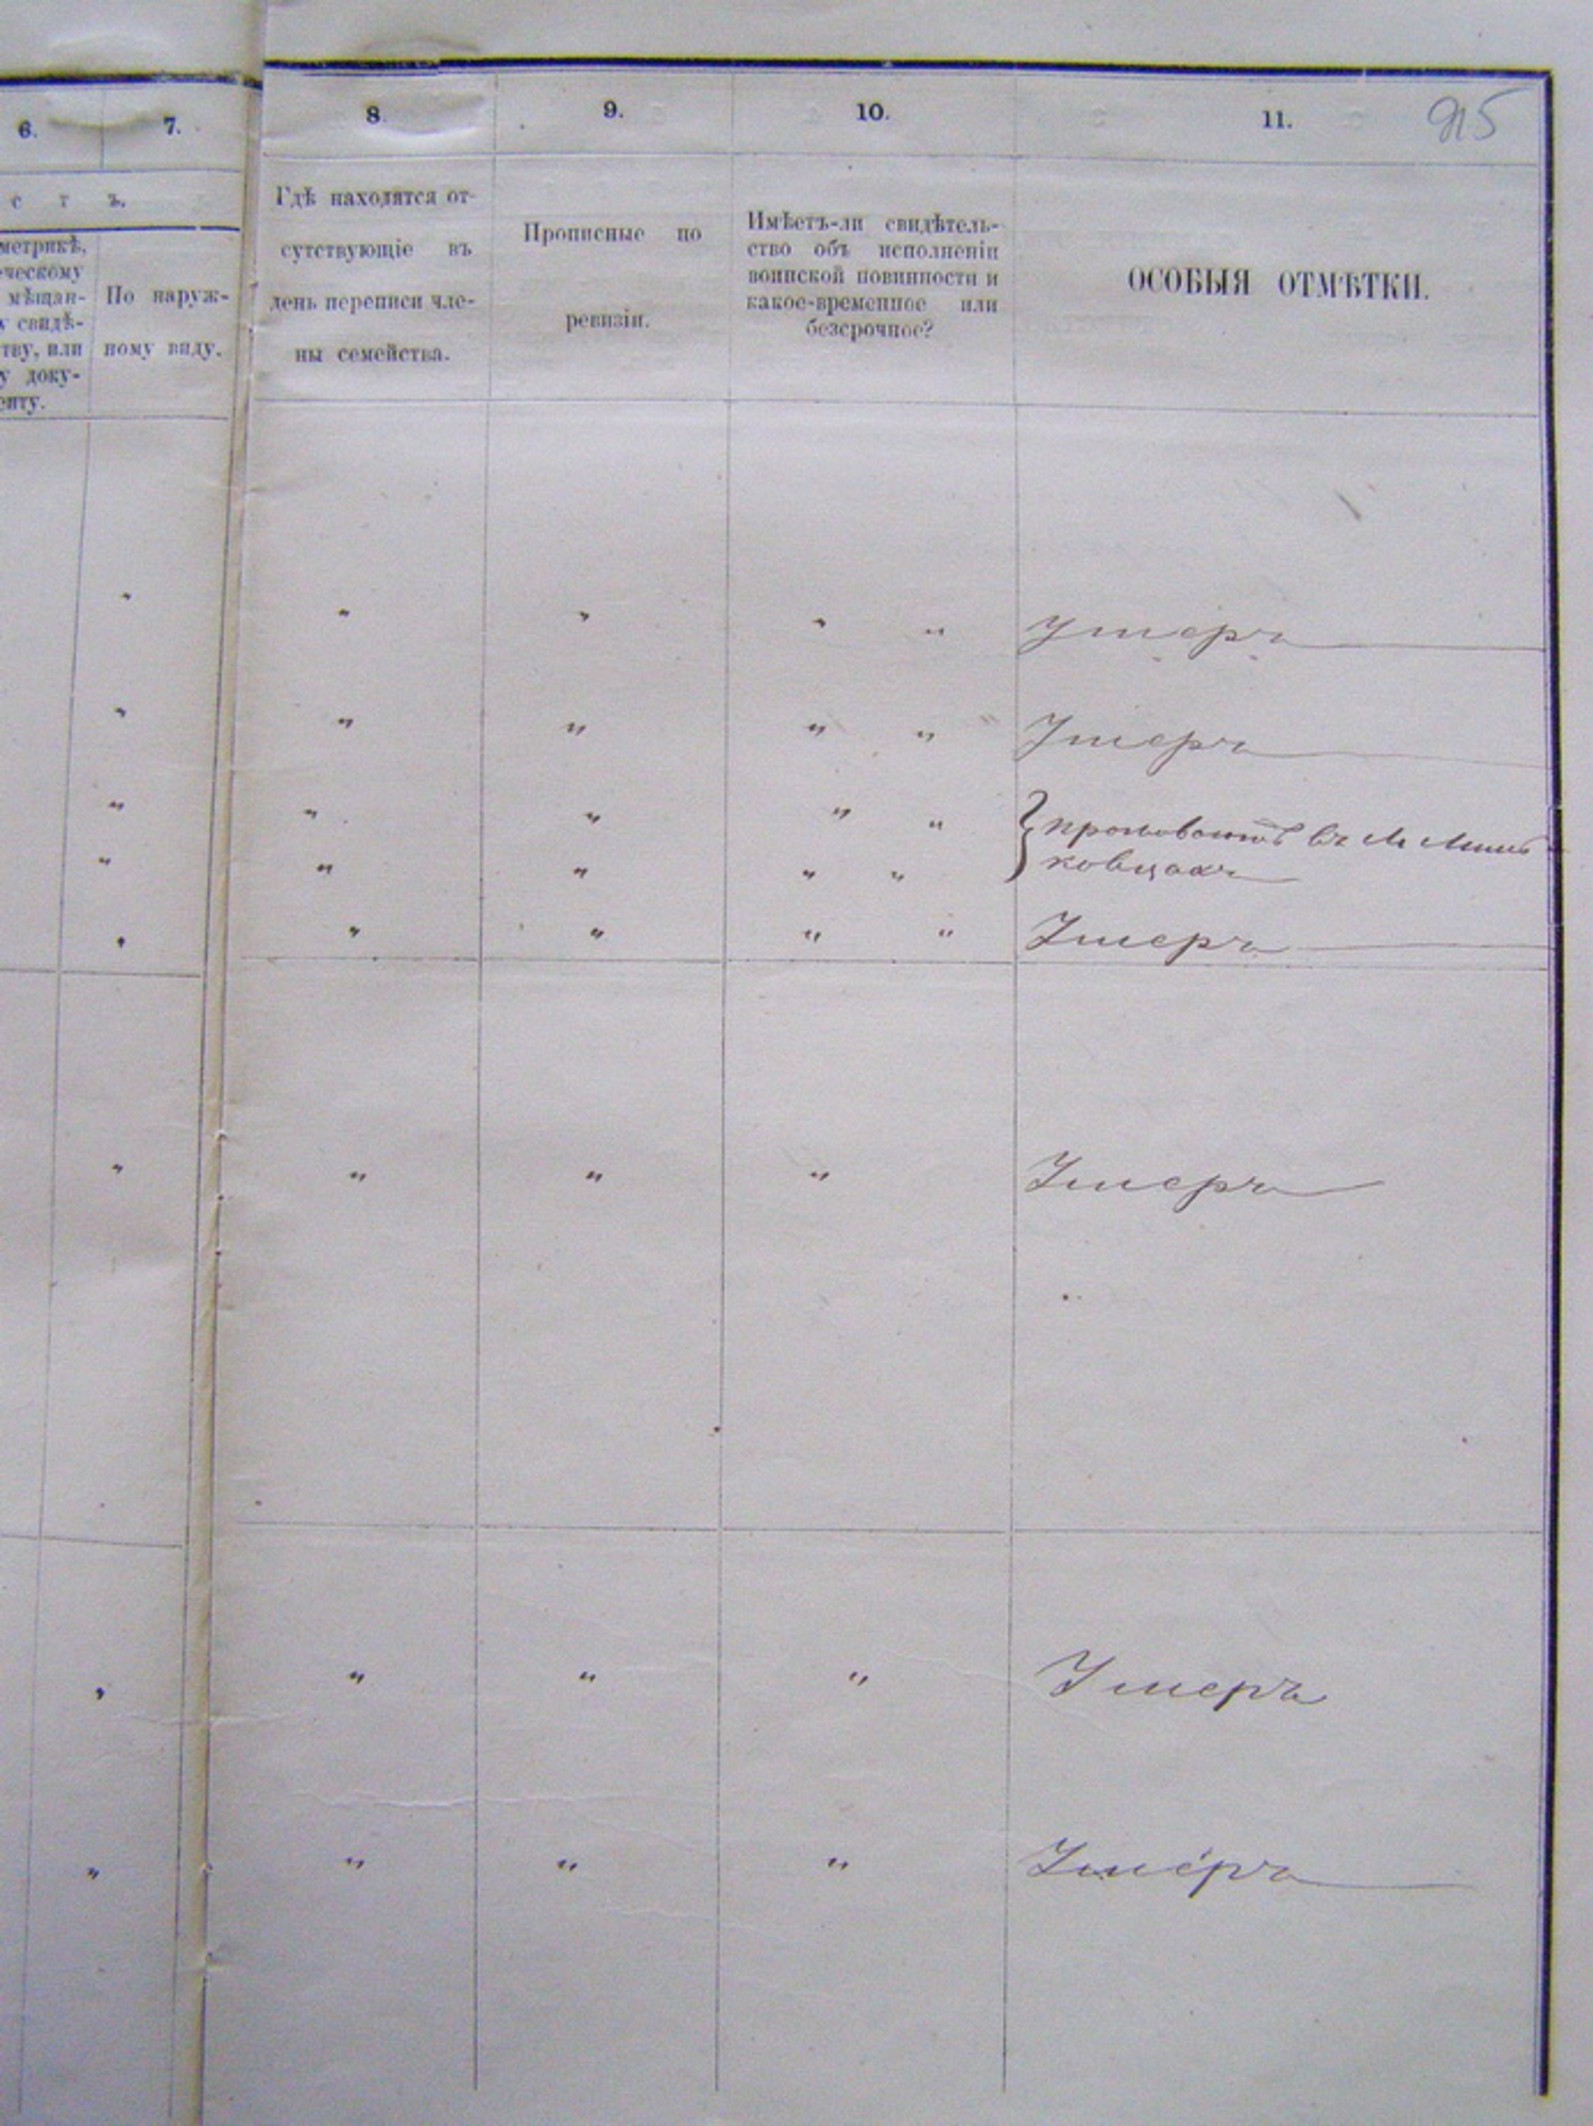 915
6.
7.
8.
9.
10.
11.
с т ъ.
метрикѣ,
ческому
мѣщан-
у свидѣ-
тву, или
у доку-
енту.
По наруж-
ному виду.
Гдѣ находятся от-
сутствующіе въ
день переписи чле-
ны семейства.
Прописные по
ревизіи.
Имѣетъ-ли свидѣтель-
ство объ исполненіи
воинской повинности и
какое-временное или
безсрочное?
ОСОБЫЯ ОТМѢТКИ.
" " " " " Умеръ
" " " " " Умеръ
" " " " " въ М Минь
" " " " " ковцахъ
" " " " " Умеръ
" " " " Умеръ
" " " " Умеръ
" " " " Умеръ